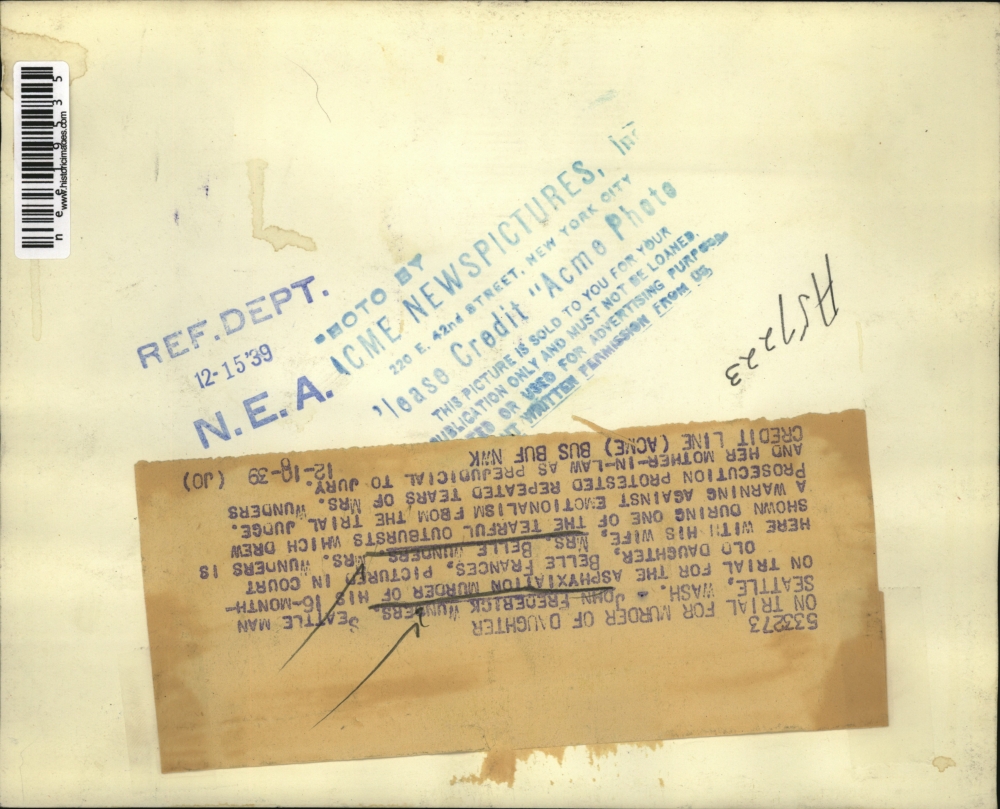 neee19535
www.historicimages.com
REF. DEPT.
12-15'39
N. E. A.
PHOTO BY
ACME NEWSPICTURES, Inc
220 E. 42nd STREET, NEW YORK CITY
Please Credit "Acme Photo
THIS PICTURE IS SOLD TO YOU FOR YOUR
PUBLICATION ONLY AND MUST NOT BE LOANED,
OR USED FOR ADVERTISING PURPOSE
WRITTEN PERMISSION FROM US
533273
ON TRIAL FOR MURDER OF DAUGHTER
SEATTLE, WASH. - JOHN FREDERICK WUNDERS, SEATTLE MAN
ON TRIAL FOR THE ASPHYXIATION MURDER OF HIS 16-MONTH-
OLD DAUGHTER, BELLE FRANCES, PICTURED IN COURT
HERE WITH HIS WIFE, MRS. BELLE WUNDERS. MRS. WUNDERS IS
SHOWN DURING ONE OF THE TEARFUL OUTBURSTS WHICH DREW
A WARNING AGAINST EMOTIONALISM FROM THE TRIAL JUDGE.
PROSECUTION PROTESTED REPEATED TEARS OF MRS. WUNDERS
AND HER MOTHER-IN-LAW AS PREJUDICIAL TO JURY.
CREDIT LINE (ACME) BUS BUF NWK 12-18-39 (JO)